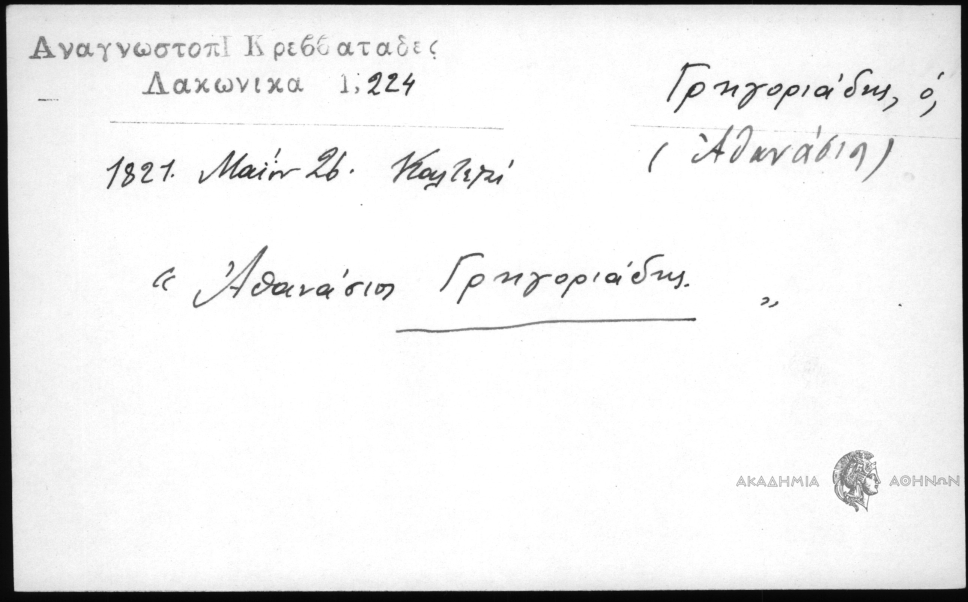 ΑναγνωστοπΙ Κρεββαταδες
Λακωνικα 1, 224
Γρηγοριάδης, ὁ,
(Ἀθανάσιος)
1821. Μαΐου 26.
“ Ἀθανάσιος Γρηγοριάδης. ”
ΑΚΑΔΗΜΙΑ ΑΘΗΝΩΝ